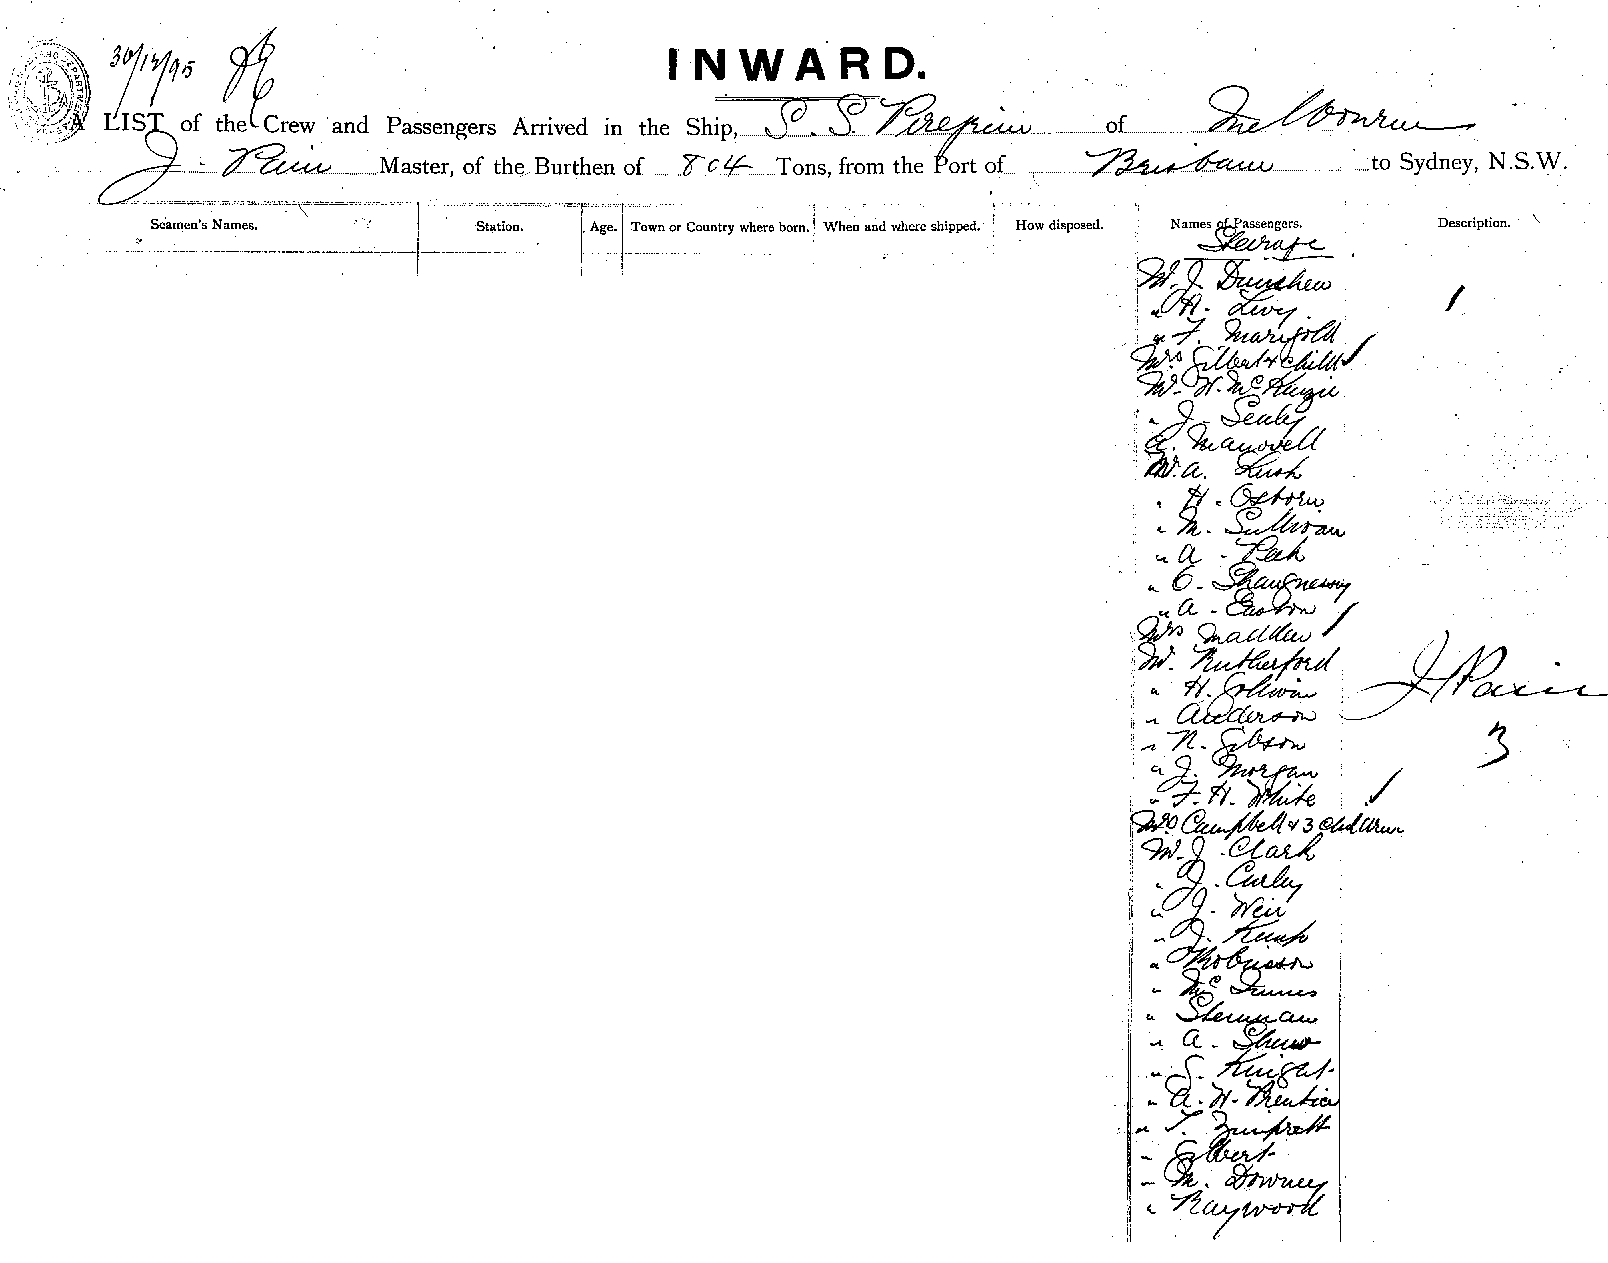 30/12/95
INWARD.
A LIST of the Crew and Passengers Arrived in the Ship, S. S. Peregrine of Melbourne
J. Pain Master, of the Burthen of 804 Tons, from the Port of Brisbane to Sydney, N.S.W.
Seamen's Names. Station. Age. Town or Country where born. When and where shipped. How disposed. Names of Passengers. Description.
Steerage
Mr. J. Dunshea
" A. Levy
" F. Marigold
Mrs Gilbert & child
Mr. H. McKenzie
" J. Sealy
Mr. A. Lush
" H. Osborn
" M. Sullivan
" A.
" O. Shaugnessy
" A. Easton
Mrs Madden
Mr. Rutherford
" H.
" Anderson
" N. Gibson
" J. Morgan
" F. H. White
Mrs Campbell & 3 children
Mr. J. Clark
" J. Curley
" J. Weir
" J. Kemp
" Robinson
" McInnes
" Sherman
" A. Shaw
" S. Knight
" A. H. Prentice
" T.
" Gilbert
" M. Downey
" Raywood
J Pain
3